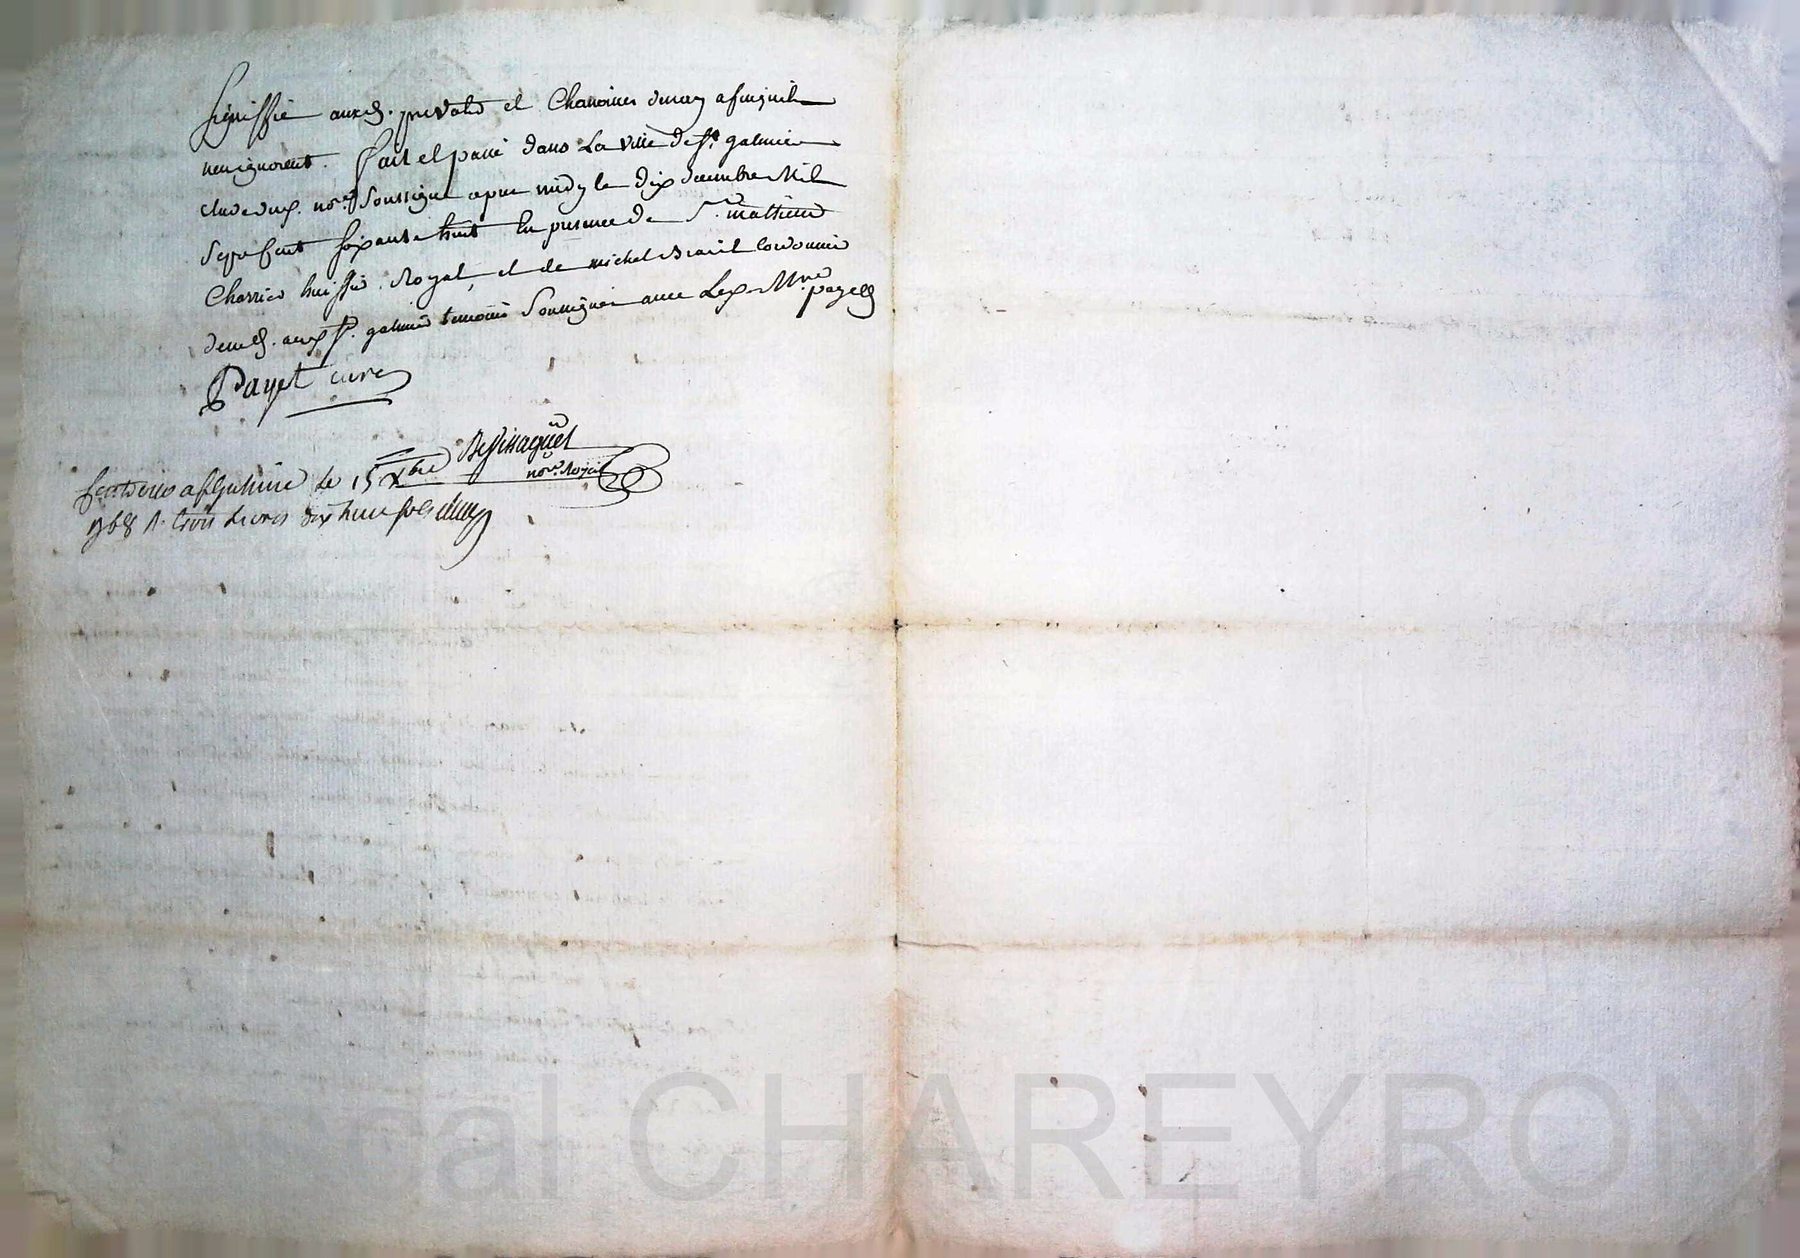 signiffié auxd. prevolté et Chanoines durey afinqu'ils
nen ignorent. fait et passé dans La ville de st. galmier
Etude dux. nore. soussigné apres midy le dix decembre Mil
Sept Cent soixante huit En presence de Sr. mathieu
Charrier huissier Royal, et de michel cordonnier
demt. aud. st. galmier temoins soussignés avec Led. Mre. payet
Payet curé
Bessinaguet
nore. Royal
Controllé a st Galmier le 15 Xbre
1768 R. trois Livres dix huit sols
Pascal CHAREYRON